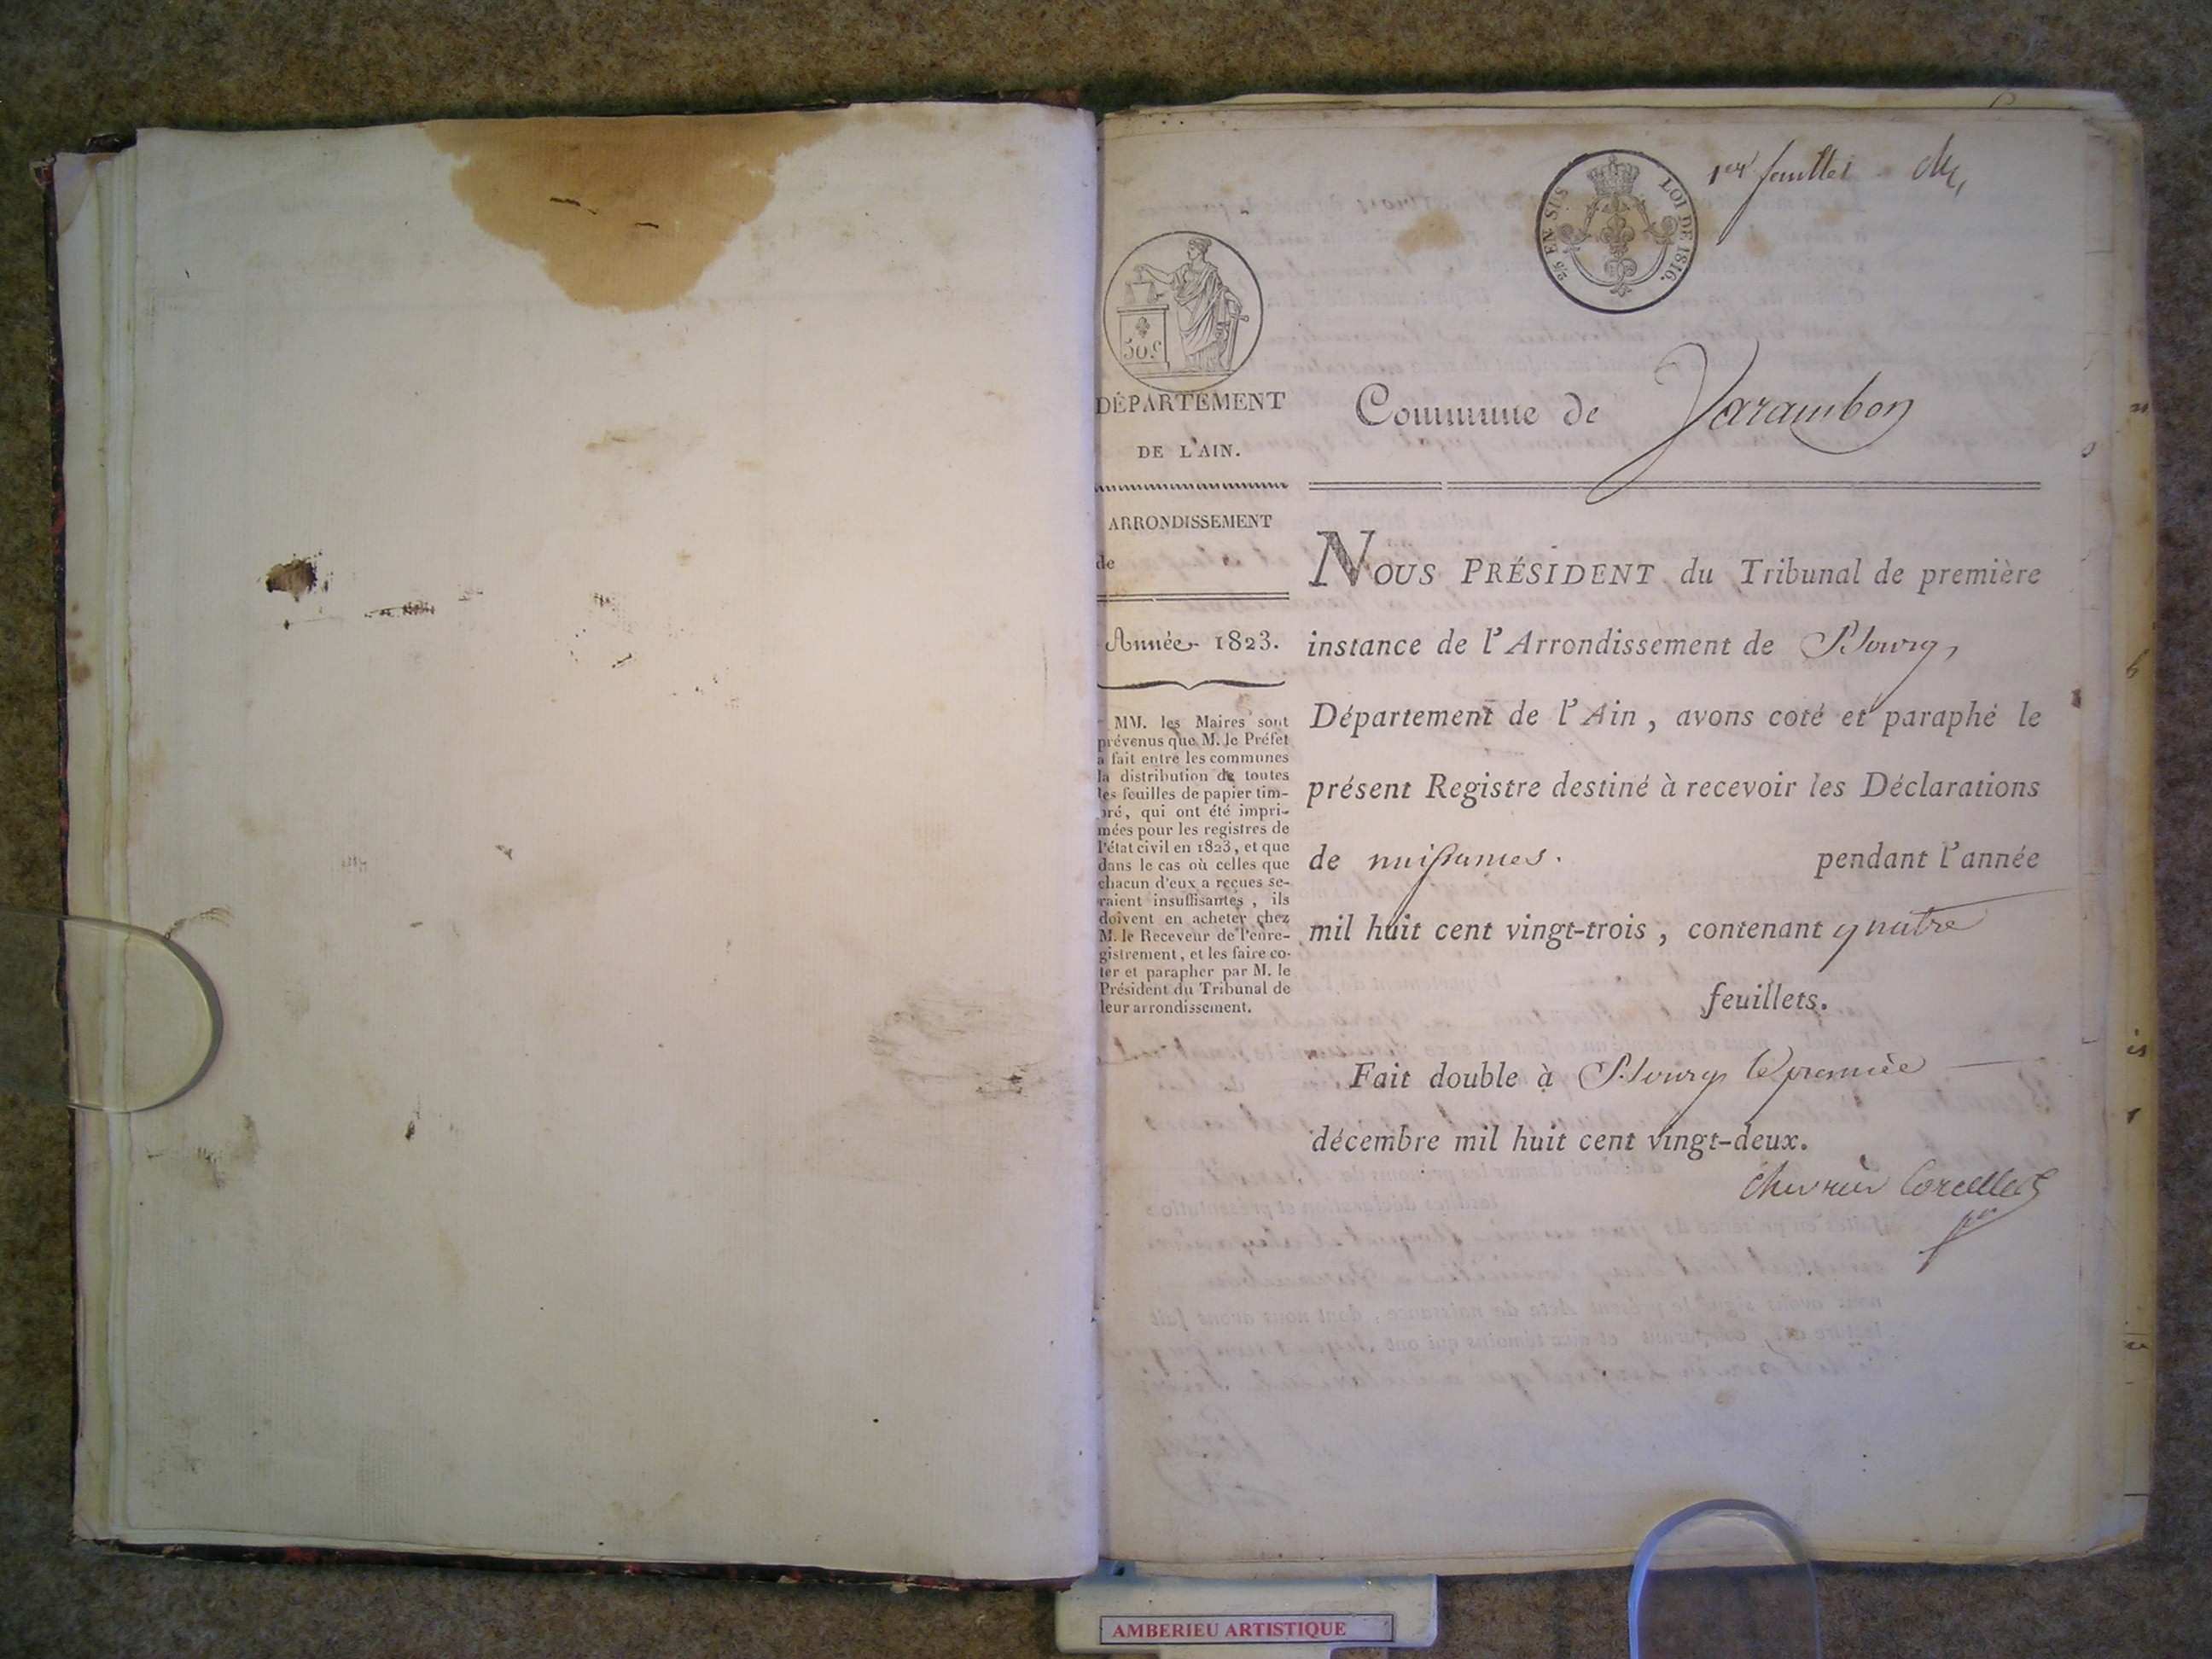 1er feuillet
2/5 EN SUS LOI DE 1816.
50c
DÉPARTEMENT
DE L'AIN.
ARRONDISSEMENT
de
Année 1823.
MM. les Maires sont
prévenus que M. le Préfet
a fait entre les communes
la distribution de toutes
les feuilles de papier tim-
bré, qui ont été impri-
mées pour les registres de
l'état civil en 1823, et que
dans le cas où celles que
chacun d'eux a reçues se-
raient insuffisantes, ils
doivent en acheter chez
M. le Receveur de l'enre-
gistrement, et les faire co-
ter et parapher par M. le
Président du Tribunal de
leur arrondissement.
Commune de Varambon
NOUS PRÉSIDENT du Tribunal de première
instance de l'Arrondissement de Bourg,
Département de l'Ain, avons coté et paraphé le
présent Registre destiné à recevoir les Déclarations
de naissances. pendant l'année
mil huit cent vingt-trois, contenant quatre
feuillets.
Fait double à Bourg le premier
décembre mil huit cent vingt-deux.
Chevrier Corcelles
AMBERIEU ARTISTIQUE